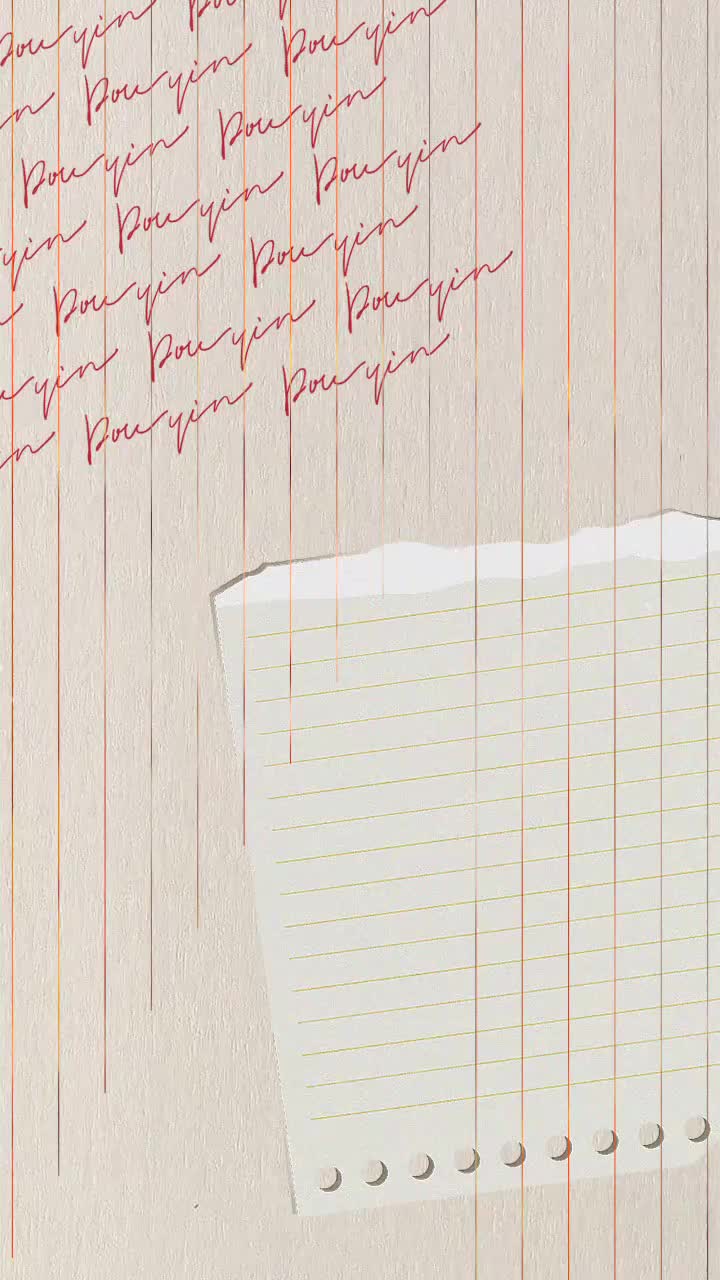 Douyin Douyin
Douyin Douyin
yin Douyin Douyin
Douyin Douyin
yin Douyin Douyin
Douyin Douyin
yin Douyin Douyin
yin Douyin Douyin